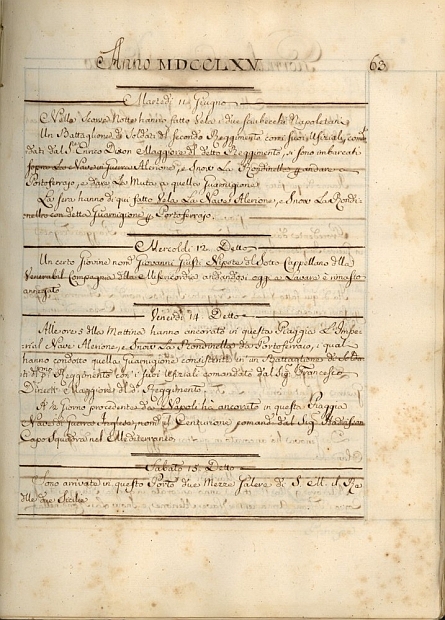 Anno MDCCLXV 63
Martedi 11 Giugno
Nella scorsa Notte hanno fatto Vela i due sciabecchi Napoletani
Un Battaglione di Soldati del secondo Reggimento con i suoi Uffiziali, coman
dati dal Sig.r Enrico Maggiore del detto Reggimento, si sono imbarcati
sopra La Nave Guerra Alerione, e Snow La Rondinella p andare a
Portoferraio, e dare La Muta a quella Guarnigione
La sera hanno di qui fatto Vela La Nave Alerione, e Snow La Rondi
nella con detta Guarnigione p Portoferraio.
Mercoldi 12 Detto
Un certo Giovine nom.o Giovanni Nipote del Sotto Cappellano della
Venerabil Compagnia della Misericordia andandosi oggi a Lavare è rimasto
annegato
Venerdi 14 Detto
Alle ore 5 della Mattina hanno ancorato in questa Piaggia L'Impe
rial Nave Alerione, e Snow La Rondinella da Portoferraio, i quali
hanno condotto quella Guarnigione consistente in un Battaglione di Solda
ti Reggimento con i suoi Ufiziali comandata dal Sig.r Francesco
Maggiore del d.o Reggimento
A ½ Giorno procedente da Napoli ha ancorato in questa Piaggia
Nave di Guerra Inglese, nom.a il Centurione comand.a dal Sig.r
Capo Squadra nel Mediterraneo.
Sabato 15 Detto
Sono arrivate in questo Porto due Mezze Galere di S. M. il Re
delle due Sicilie